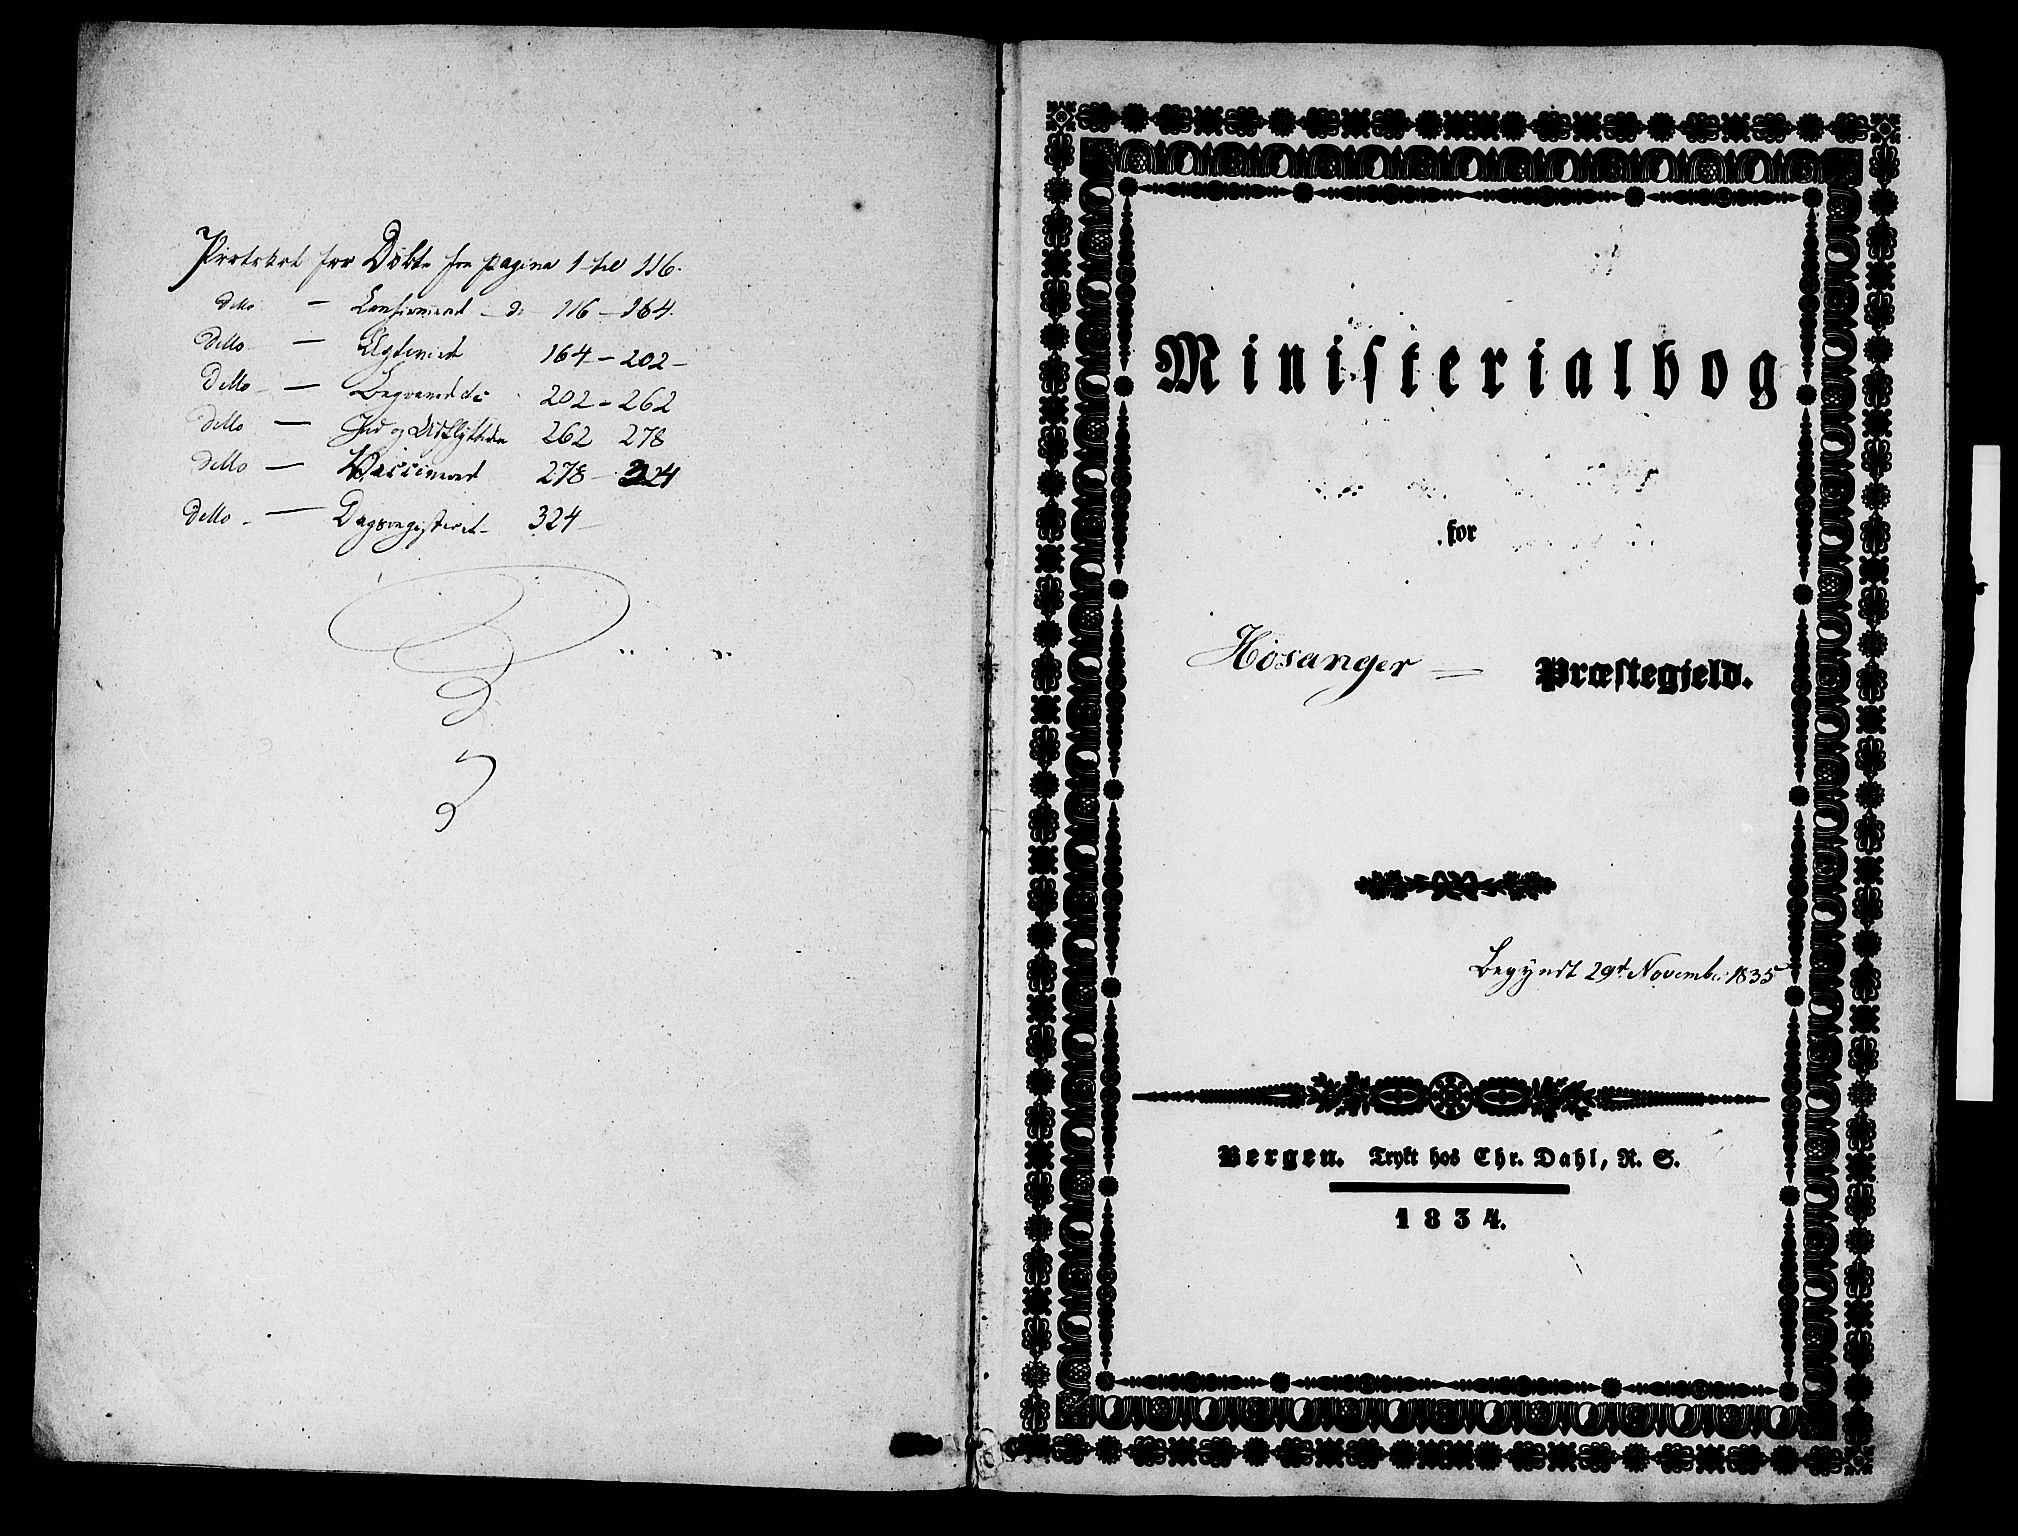 Protokol for Döbte fra pagina 1 til 116.
detto — Confirmered — do 116 – 164.
detto — Ægteviet 164 – 202 –
Detto — Begravedde 202 – 262
detto — Ind og Udflyttede 262 278
detto — Vaccinered 278 – 324
detto – — Dagsregisteret – 324 –
Ministerialbog
for
Hosanger — Præstegjeld.
Begyndt 29de Novembr 1835
Bergen. Trykt hos Chr. Dahl, R. S.
1834.